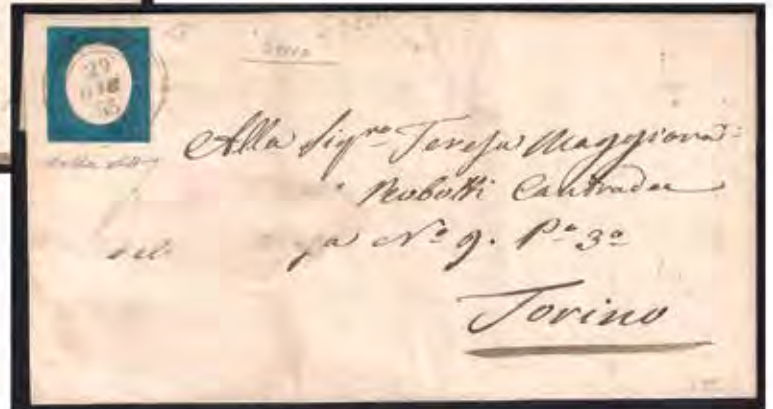 29
55
Alla Sig.ra Teresa Maggiora
Robotti Contrada
del
ga N.o 9. P.o 3o
Torino